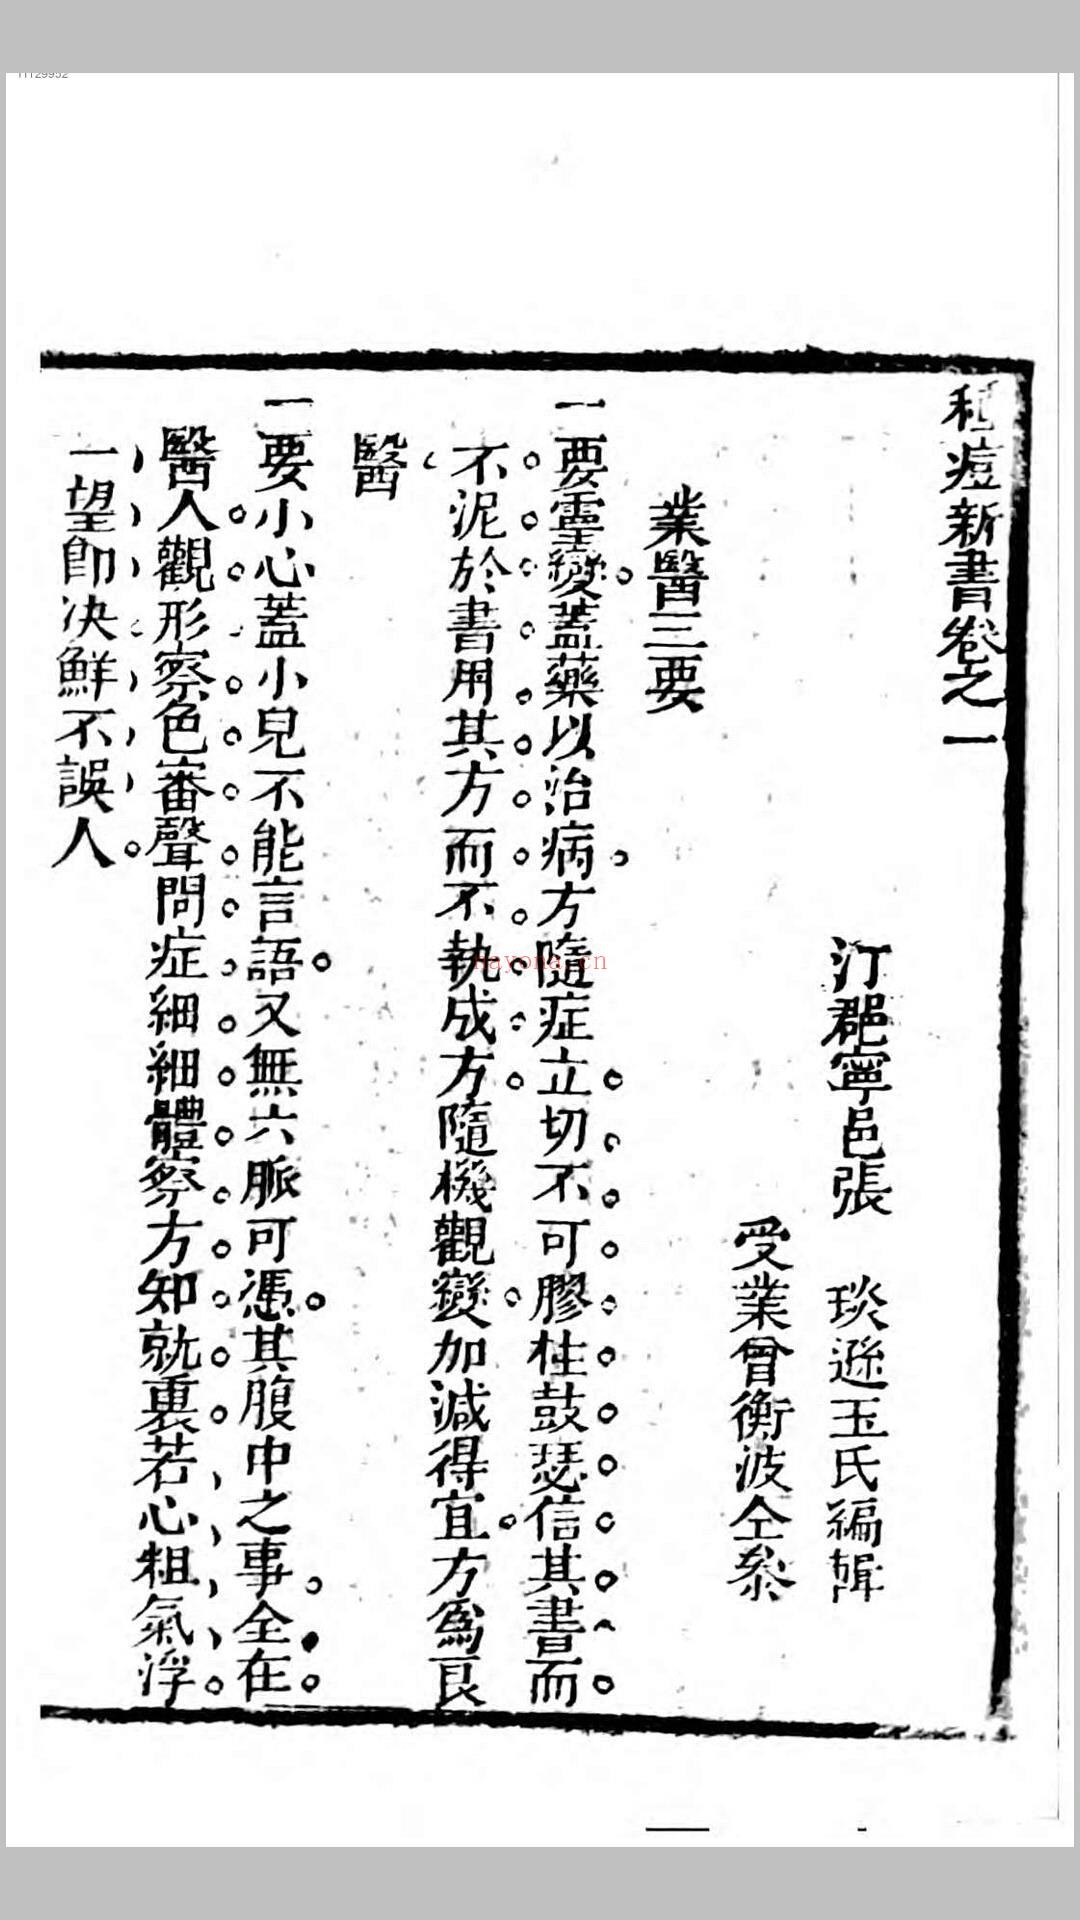 11129952
種痘新書卷之一
汀郡寧邑張 琰遜玉氏編輯
受業曾衡波仝叅
業醫三要
一要靈變蓋藥以治病方隨症立切不可膠柱鼓瑟信其書而
不泥於書用其方而不執成方隨機觀變加減得宜方爲良
醫
一要小心蓋小兒不能言語又無六脈可憑其腹中之事全在
醫人觀形察色審聲問症細細體察方知就裏若心粗氣浮
一望卽决鮮不誤人
nayona.cn